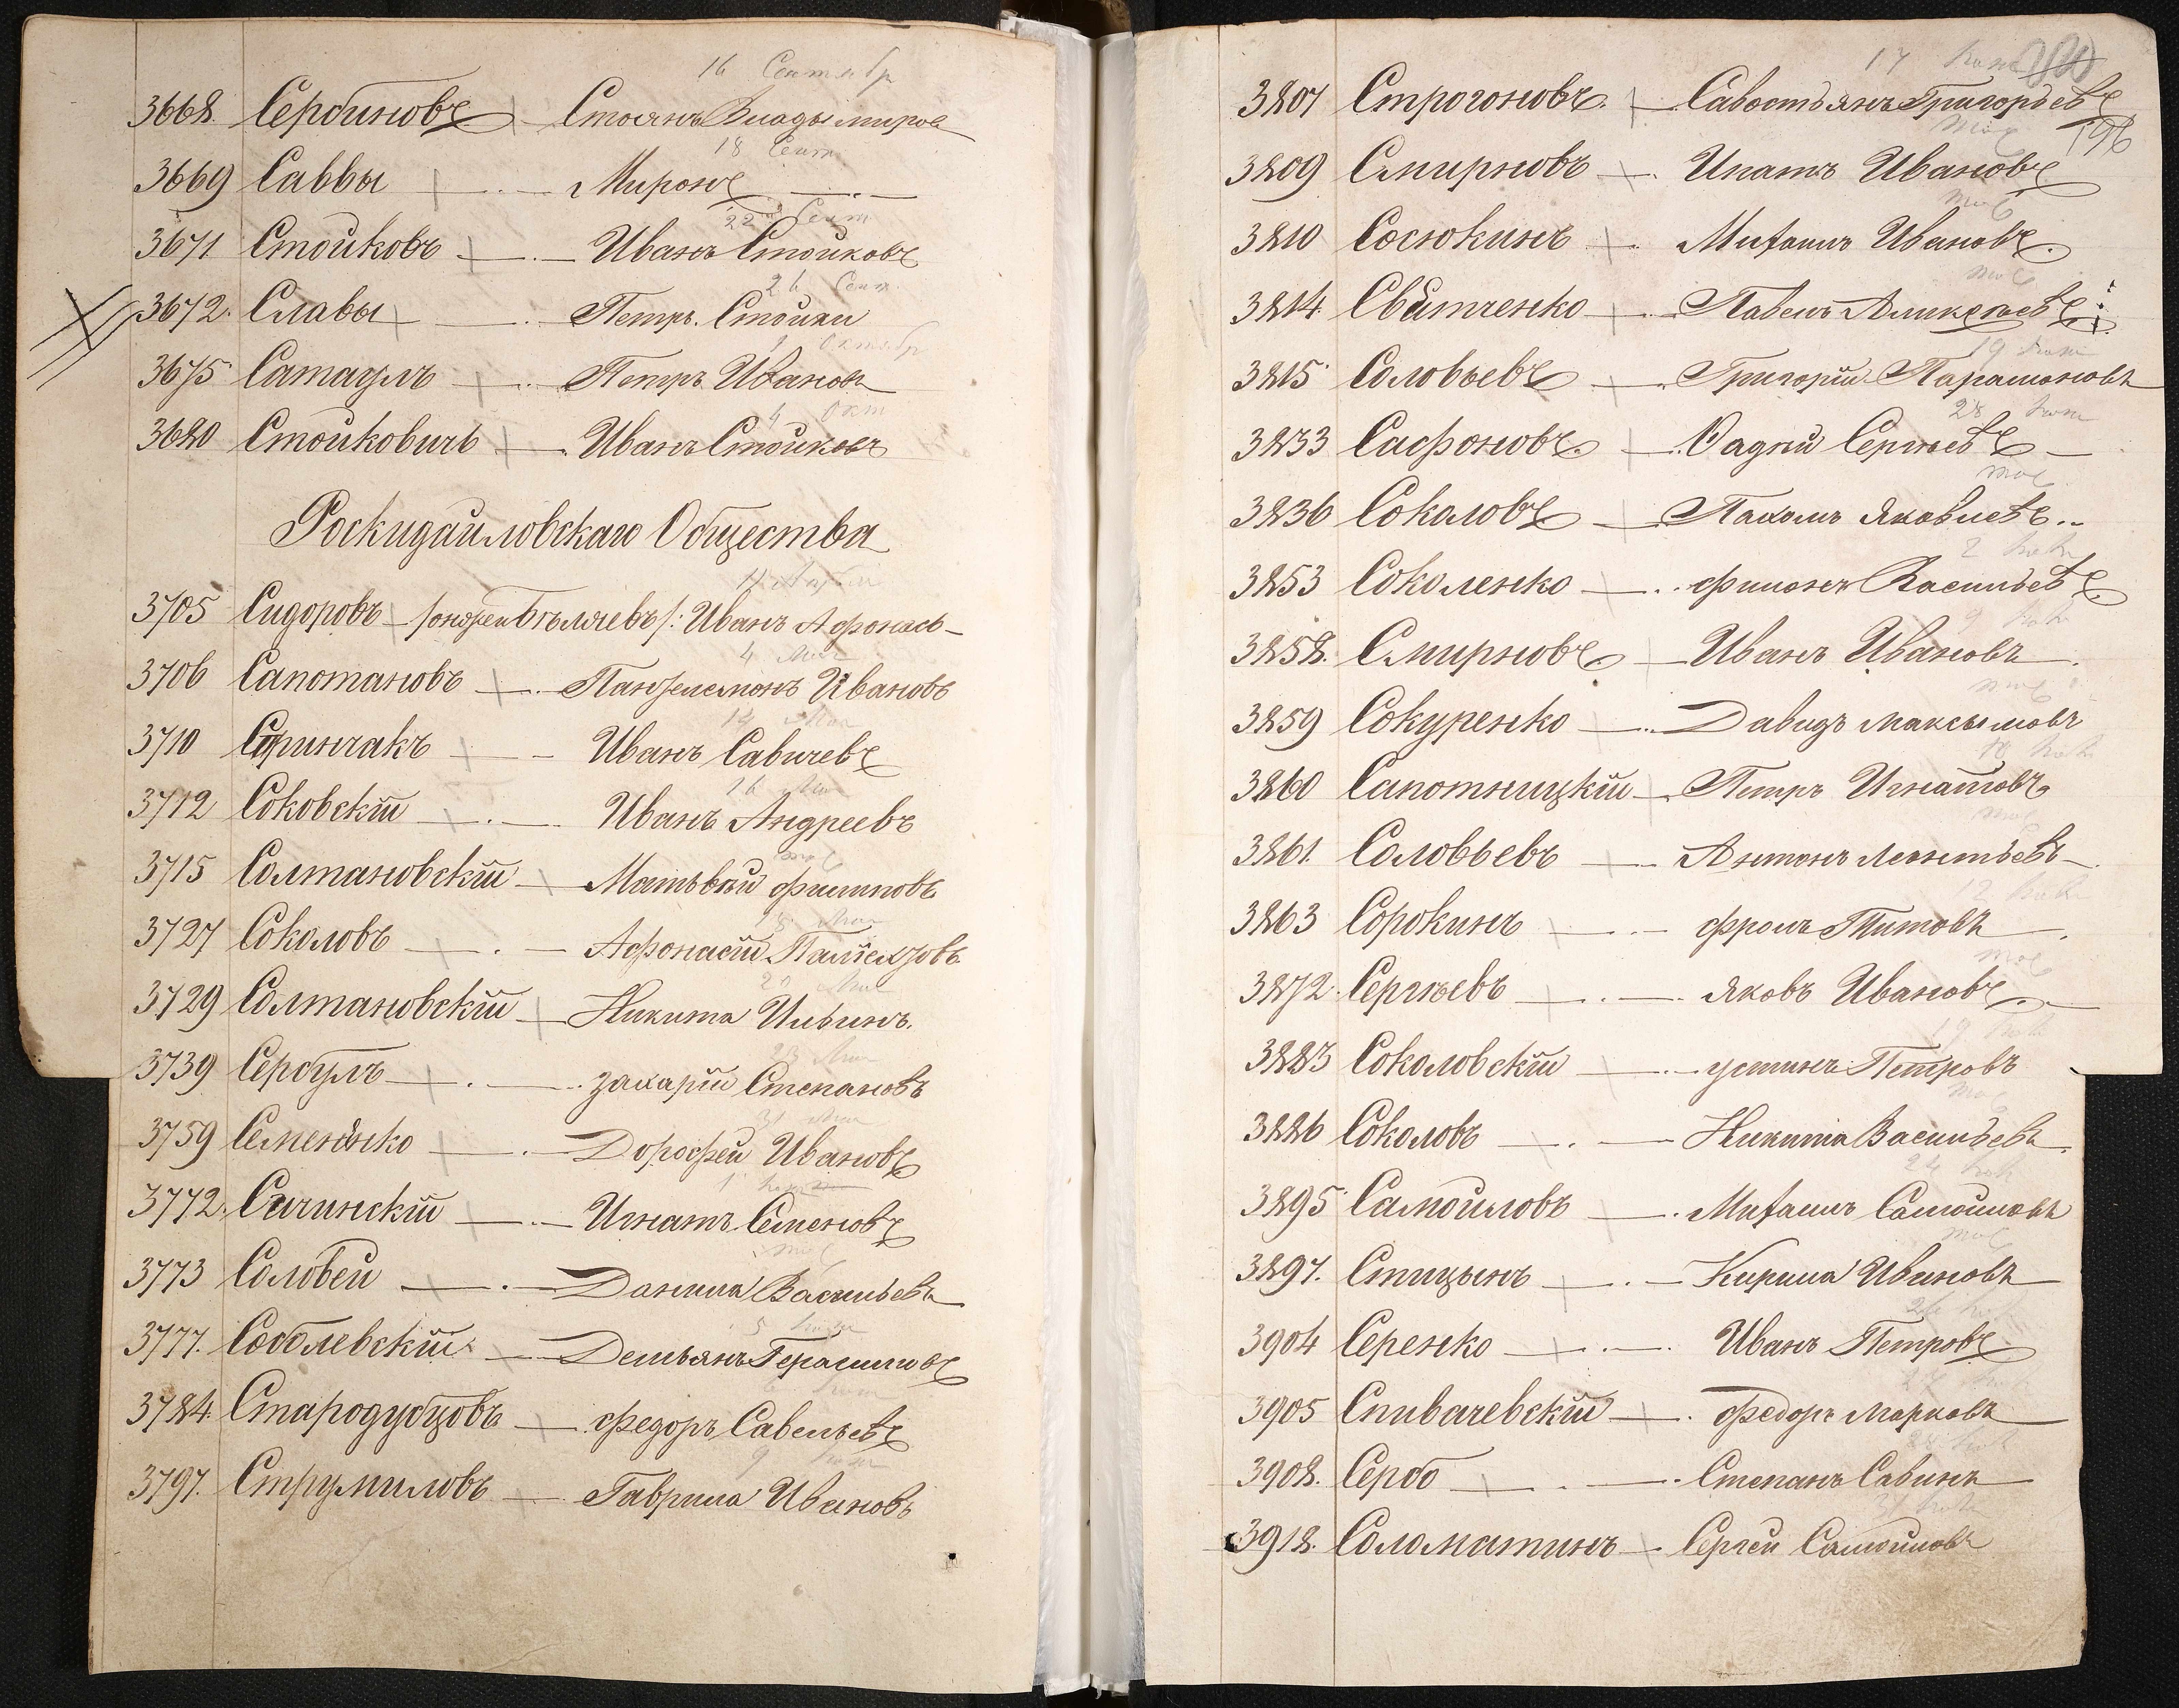 16 Сентябр
3668. Сербиновъ — Стоянъ Владымиров
18 Сент
3669 Саввы — Миронъ —
22 Сент
3671 Стойковъ — Иванъ Стойковъ
26 Сент.
3672. Славы — Петръ. Стойки
Октябр
3675 Сатаулъ — Петръ Иванов
4 Окт
3680 Стойковичъ — Иванъ Стойковъ
Роскидайловскаго Общества
3705 Сидоровъ — Бѣляевъ/: Иванъ Афонась —
4 Мая
3706 Сапотановъ — Пантелемонъ Ивановъ
14 Мая
3710 Иванъ Савичевъ
16 Мая
3712 Соковскій — Иванъ Андреевъ
тоже
3715 Солтановскій — Матьвѣй Филиповъ
Мая
3727 Соколовъ — Афонасій
20 Мая
3729 Солтановскій — Никита Ильинъ.
23 Мая
3739 Сербулъ — Захарій Степановъ
31 Мая
3759 Семененко — Дорофей Ивановъ
1
3772. Сичинскій — Игнатъ Семеновъ
тоже
3773 Соловей — Данила Васильевъ
5 Іюня
3777. Соболевскій — Демьянъ Герасимовъ
6 Іюня
3784. Стародубцовъ — Федоръ Савельевъ
9 Іюня
3797. Струмиловъ — Гаврила Ивановъ
17 Іюня
3807 Строгоновъ. — Савостьянъ Григорьевъ
196
тоже
3809 Смирновъ — Ипатъ Ивановъ
тоже
3810 Сосюкинъ — Михаилъ Ивановъ.
тоже
3814. Свитченко — Павелъ Аликсѣевъ
19 Іюня
3815 Соловьевъ — Григорій Парамоновъ
28 Іюня
3833 Сафоновъ. — Фадѣй Сергѣевъ —
тоже
3836 Соколовъ — Пахомъ Яковлевъ..
2 Іюля
3853 Соколенко — Филонъ Васильевъ
9 Іюля
3858. Смирновъ — Иванъ Ивановъ
тоже
3859 Сокуренко — Давидъ Максымовъ
Іюля
3860 Сапотницкій — Петръ Игнатовъ
тоже
3861. Соловьевъ — Антонъ Леонтьевъ —
12 Іюля
3863 Сорокинъ — Фролъ Титовъ
тоже
3872. Сергѣевъ — Яковъ Ивановъ
19 Іюля
3883 Соколовскій — Устинъ Петровъ
тоже
3886 Соколовъ — Никита Васильевъ
24 Іюля
3895 Самойловъ — Михаилъ Самойловъ
тоже
3897. Спицынъ — Кирила Ивановъ
Іюля
3904 Серенко — Иванъ Петровъ
3905 Спивачевскій — Федоръ Марковъ
3908. Сербо — Степанъ Савинъ
Іюля
3918. Соломатинъ — Сергей Самойловъ